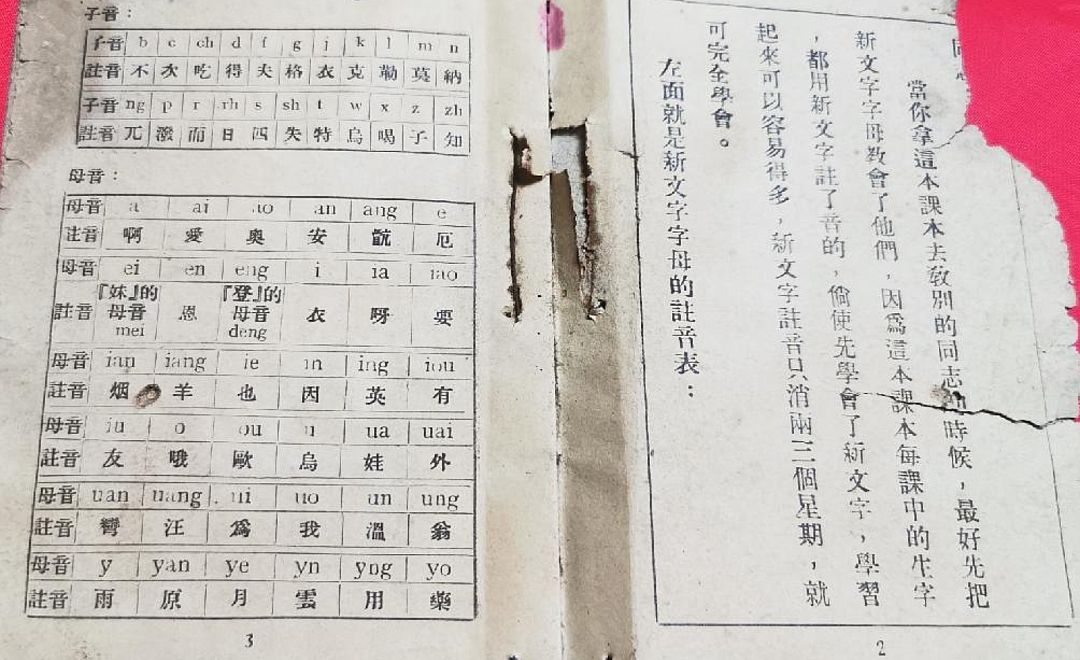 當你拿這本課本去敎別的同志 時候，最好先把
新文字字母教會了他們，因爲這本課本每課中的生字
，都用新文字註了音的，倘使先學會了新文字，學習
起來可以容易得多，新文字註音只消兩三個星期，就
可完全學會。
左面就是新文字字母的註音表：
2
子音：
子音 b c ch d f g j k l m n
註音 不 次 吃 得 夫 格 衣 克 勒 莫 納
子音 ng p r rh s sh t w x z zh
註音 兀 潑 而 日 四 失 特 烏 喝 子 知
母音：
母音 a ai ao an ang e
註音 啊 愛 奥 安 骯 厄
母音 ei en eng i ia iao
註音 『妹』的母音mei 恩 『登』的母音deng 衣 呀 要
母音 ian iang ie in ing iou
註音 烟 羊 也 因 英 有
母音 iu o ou u ua uai
註音 友 哦 歐 烏 娃 外
母音 uan uang ui uo un ung
註音 彎 汪 爲 我 溫 翁
母音 y yan ye yn yng yo
註音 雨 原 月 雲 用 藥
3